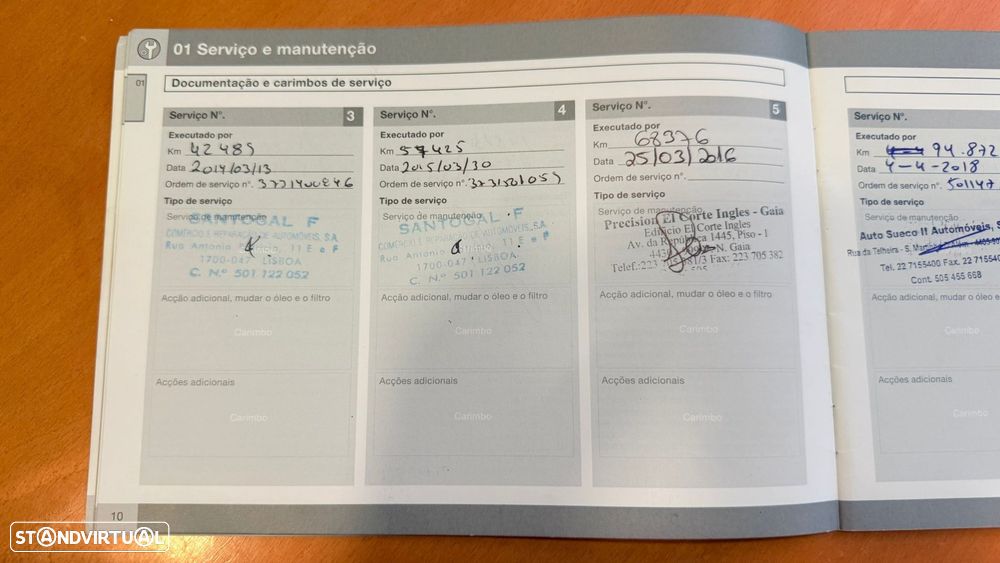 01 Serviço e manutenção
01
Documentação e carimbos de serviço
Serviço Nº. 3
Executado por
Km 42 485
Data 2014/03/13
Ordem de serviço nº. 3721400846
Tipo de serviço
Serviço de manutenção
SANTOGAL F
COMÉRCIO E REPARAÇÃO DE AUTOMÓVEIS, S.A.
Rua Antonio 11 E e F
1700-047 LISBOA
C. N.º 501 122 052
Acção adicional, mudar o óleo e o filtro
Carimbo
Acções adicionais
Carimbo
Serviço Nº. 4
Executado por
Km 57425
Data 2015/03/30
Ordem de serviço nº. 3731501059
Tipo de serviço
Serviço de manutenção
SANTOGAL F
COMÉRCIO E REPARAÇÃO DE AUTOMÓVEIS, S.A.
Rua Antonio 11 E e F
1700-047 LISBOA
C. N.º 501 122 052
Acção adicional, mudar o óleo e o filtro
Carimbo
Acções adicionais
Carimbo
Serviço Nº. 5
Executado por
Km 68376
Data 25/03/2016
Ordem de serviço nº.
Tipo de serviço
Serviço de manutenção
Precision El Corte Ingles - Gaia
Edificio El Corte Ingles
Av. da República 1445, Piso - 1
N. Gaia
Telef.:223 Fax: 223 705 382
Acção adicional, mudar o óleo e o filtro
Carimbo
Acções adicionais
Carimbo
Serviço Nº.
Executado por
Km 94.872
Data 4-4-2018
Ordem de serviço nº. 501147
Tipo de serviço
Serviço de manutenção
Auto Sueco II Automóveis, S
Rua da Telheira - 5,
Tel. 22 7155400 Fax. 22 7155
Cont. 505 455 668
Acção adicional, mudar o óleo e
Carim
Acções adicionais
Carim
10
STANDVIRTUAL